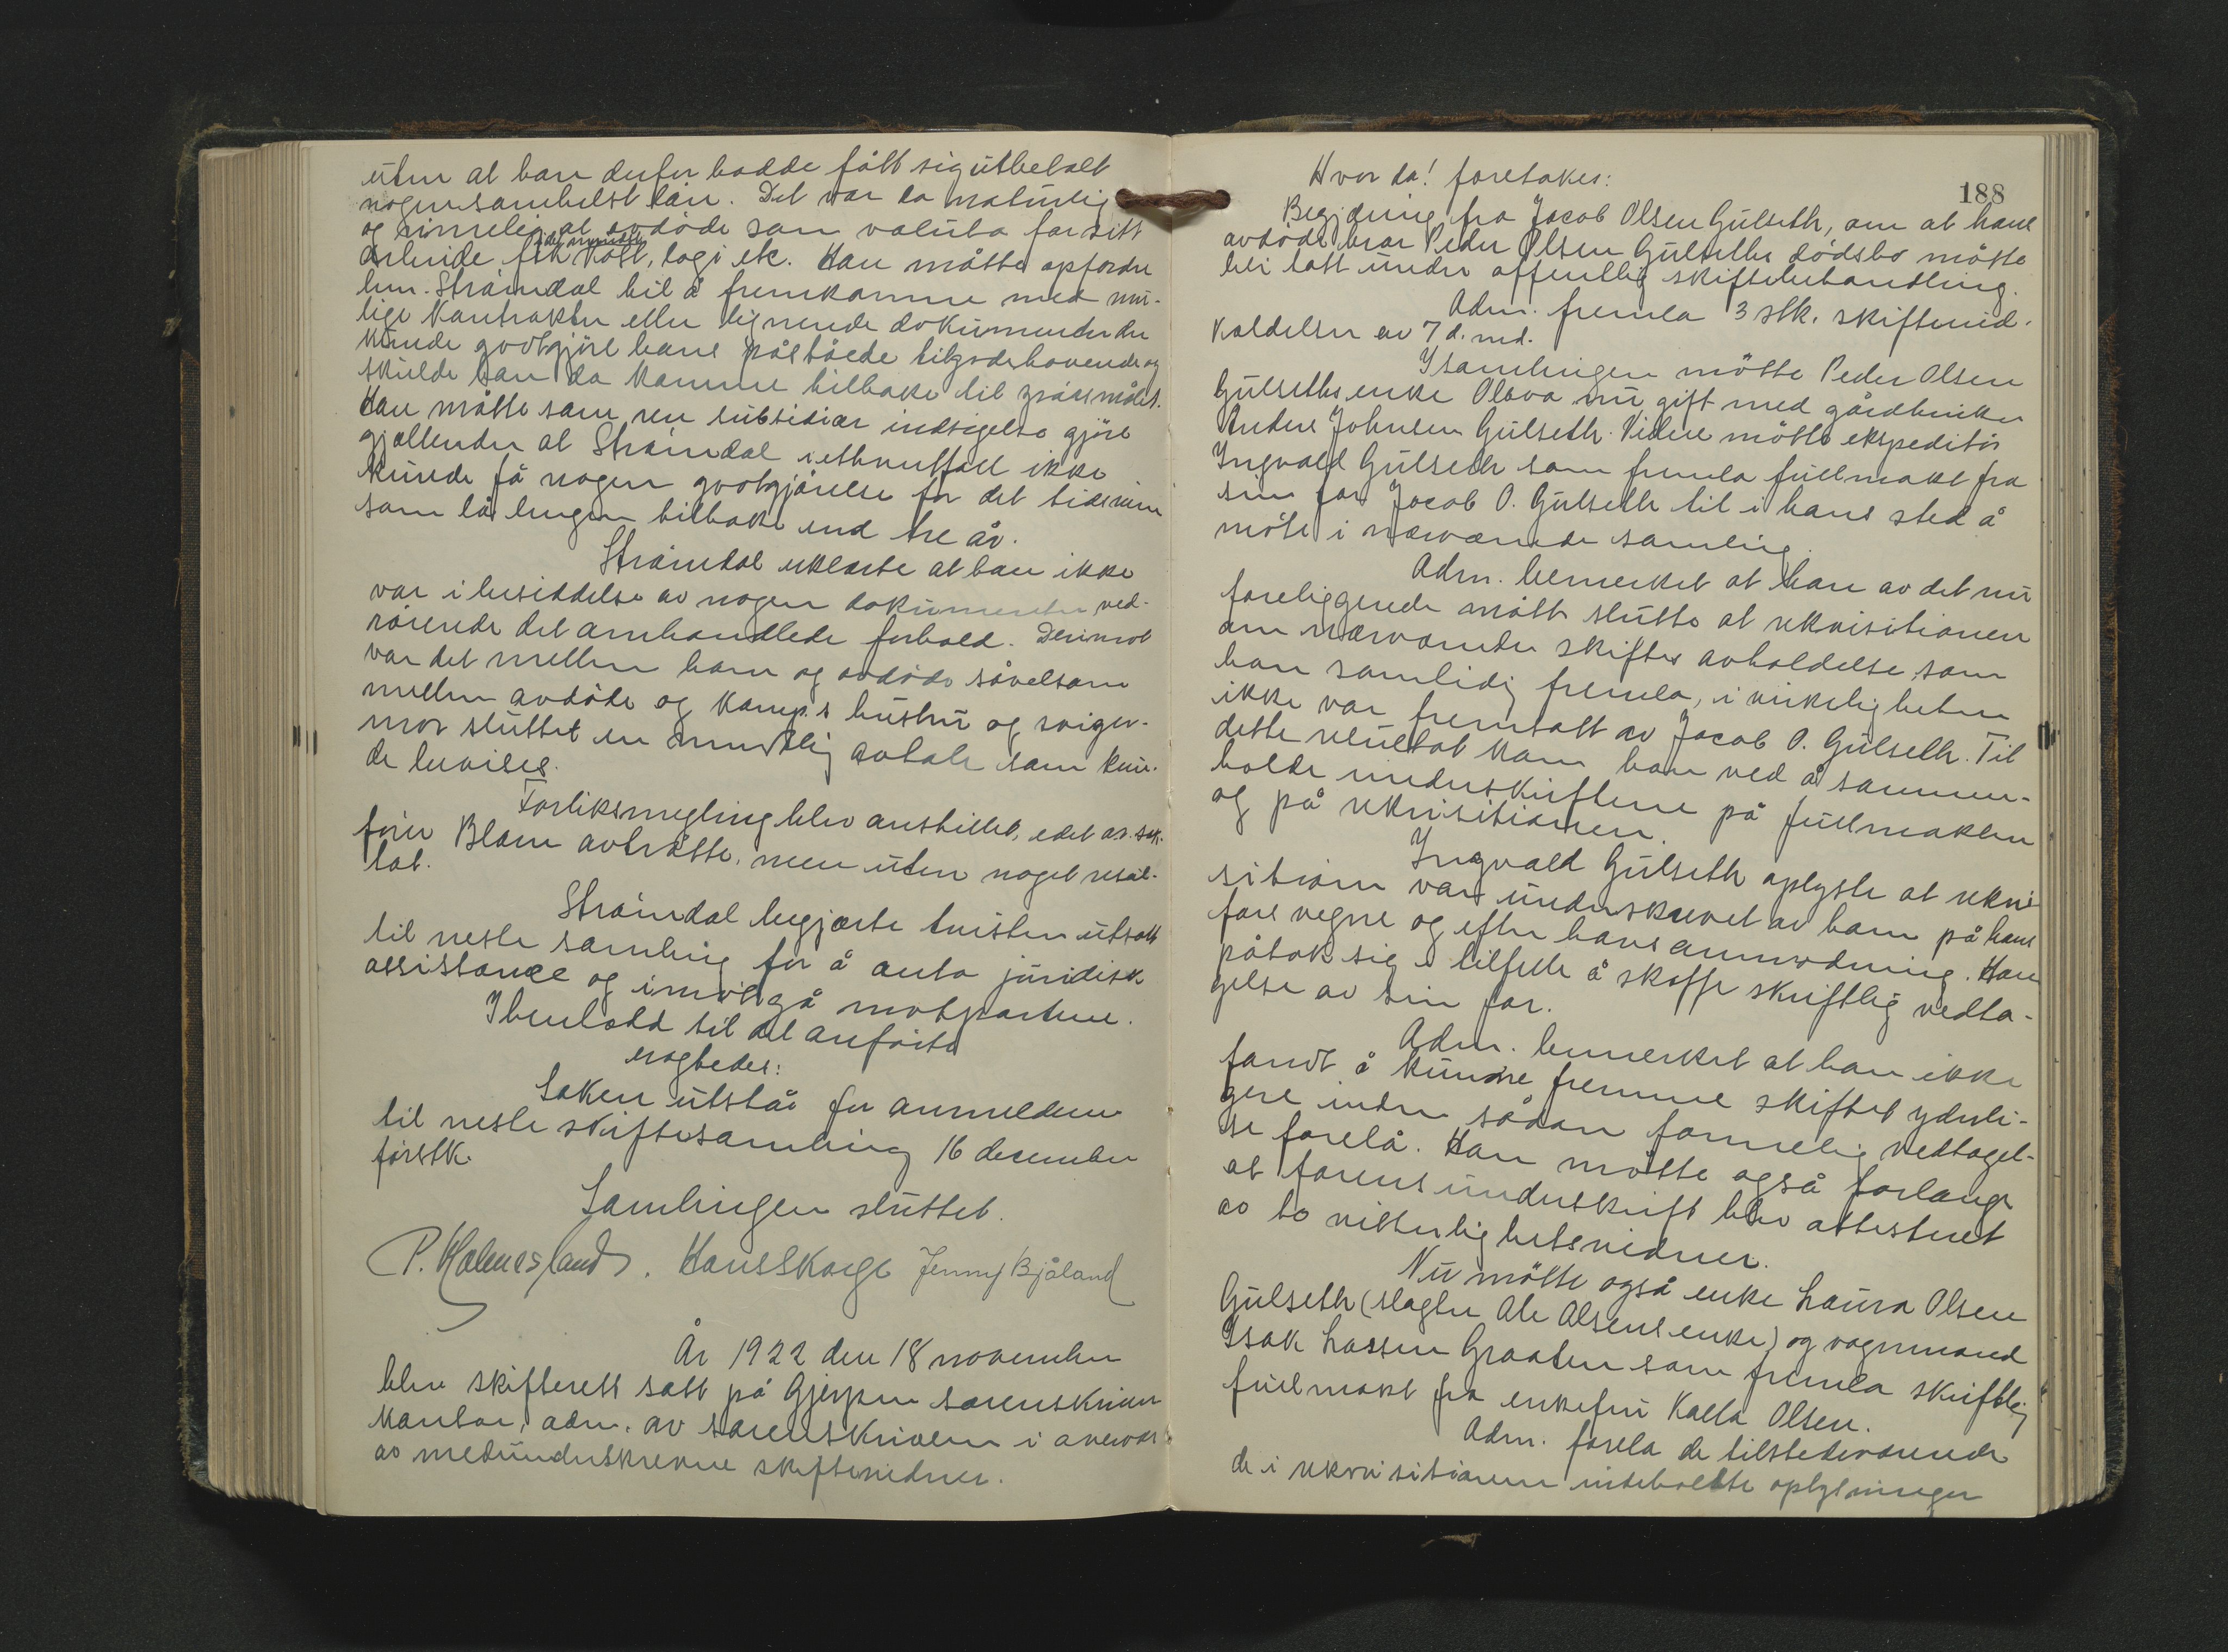 uten at han derfor hadde fått sig utbetalt
nogensomhelst lön. Det var da naturlig
og rimelig at avdöde som valuta for sitt
arbeide fik kost, logi etc. Han måtte opfordre
hm. Ströindal til å fremkomme med mu-
lige kontrakter eller lignende dokumenter der
kunde godtgjöre hans påståede tilgodehavende og
skulde han da komme tilbake til spörsmålet.
Han måtte som ren subsidiær indsigelse gjöre
gjællende at Ströindal i ethvertfall ikke
kunde få nogen godtgjörelse for det tidsrum
som lå lenger tilbake end tre år.
Ströindal erklærte at han ikke
var i besiddelse av nogen dokumenter ved-
rörende det omhandlede forhold. Derimot
var det mellem ham og avdöde såvelsom
mellem avdöde og Komp.s hustru og sviger-
mor sluttet en mundtlig avtale som kun-
de bevises.
Forliksmegling blev anstillet, idet o.r.sak-
förer Blom avtrådte, men uten noget resul-
tat.
Ströindal begjærte tvisten utsatt
til neste samling for å anta juridisk
assistance og imötegå motparten.
I henhold til det anförte
eragtedes:
Saken utstår for anmelderen
til neste skiftesamling 16 desember
förstk.
Samlingen sluttet.
P. Holmesland. Hans Skoge Jenny Bjåland
År 1922 den 18 november
blev skifterett satt på Gjerpen sorenskriver
kontor, adm. av sorenskriveren i overvær
av medunderskrevne skiftevidner.
188
Hvor da! foretokes:
Begjæring fra Jacob Olsen Gulseth, om at hans
avdöde bror Peder Olsen Gulseths dödsbo måtte
bli tatt under offentlig skiftebehandling.
Adm. fremla 3 stk. skifteind-
kaldelser av 7 d. md.
I samlingen mötte Peder Olsen
Gulseths enke Olava nu gift med gårdbruker
Anders Johnsen Gulseth. Videre mötte ekspeditör
Ingvald Gulseth som fremla fullmakt fra
sin far Jacob O. Gulseth til i hans sted å
möte i nærværende samling.
Adm. bemerket at han av det nu
foreliggende måtte slutte at rekvisitionen
om nærværende skiftes avholdelse, som
han samtidig fremla, i virkeligheten
ikke var fremsatt av Jacob O. Gulseth. Til
dette resultat kom han ved å sammen-
holde underskriftene på fullmakten
og på rekvisitionen.
Ingvald Gulseth oplyste at rekvi-
sitionen var underskrevet av ham på hans
fars vegne og efter hans anmodning. Han
påtok sig i tilfelle å skaffe skriftlig vedta-
gelse av sin far.
Adm. bemerket at han ikke
fandt å kunne fremme skiftet yderli-
gere inden sådan formelig vedtagel-
se forelå. Han måtte også forlange
at farens underskrift blev attesteret
av to vitterlighetsvidner.
Nu mötte også enke Laura Olsen
Gulseth (slagter Ole Olsens enke) og vognmand
Isak Larsen Graaten som fremla skriftlig
fullmakt fra enkefru Kalla Olsen.
Adm. forela de tilstedeværende
de i rekvisitionen indeholdte oplysninger